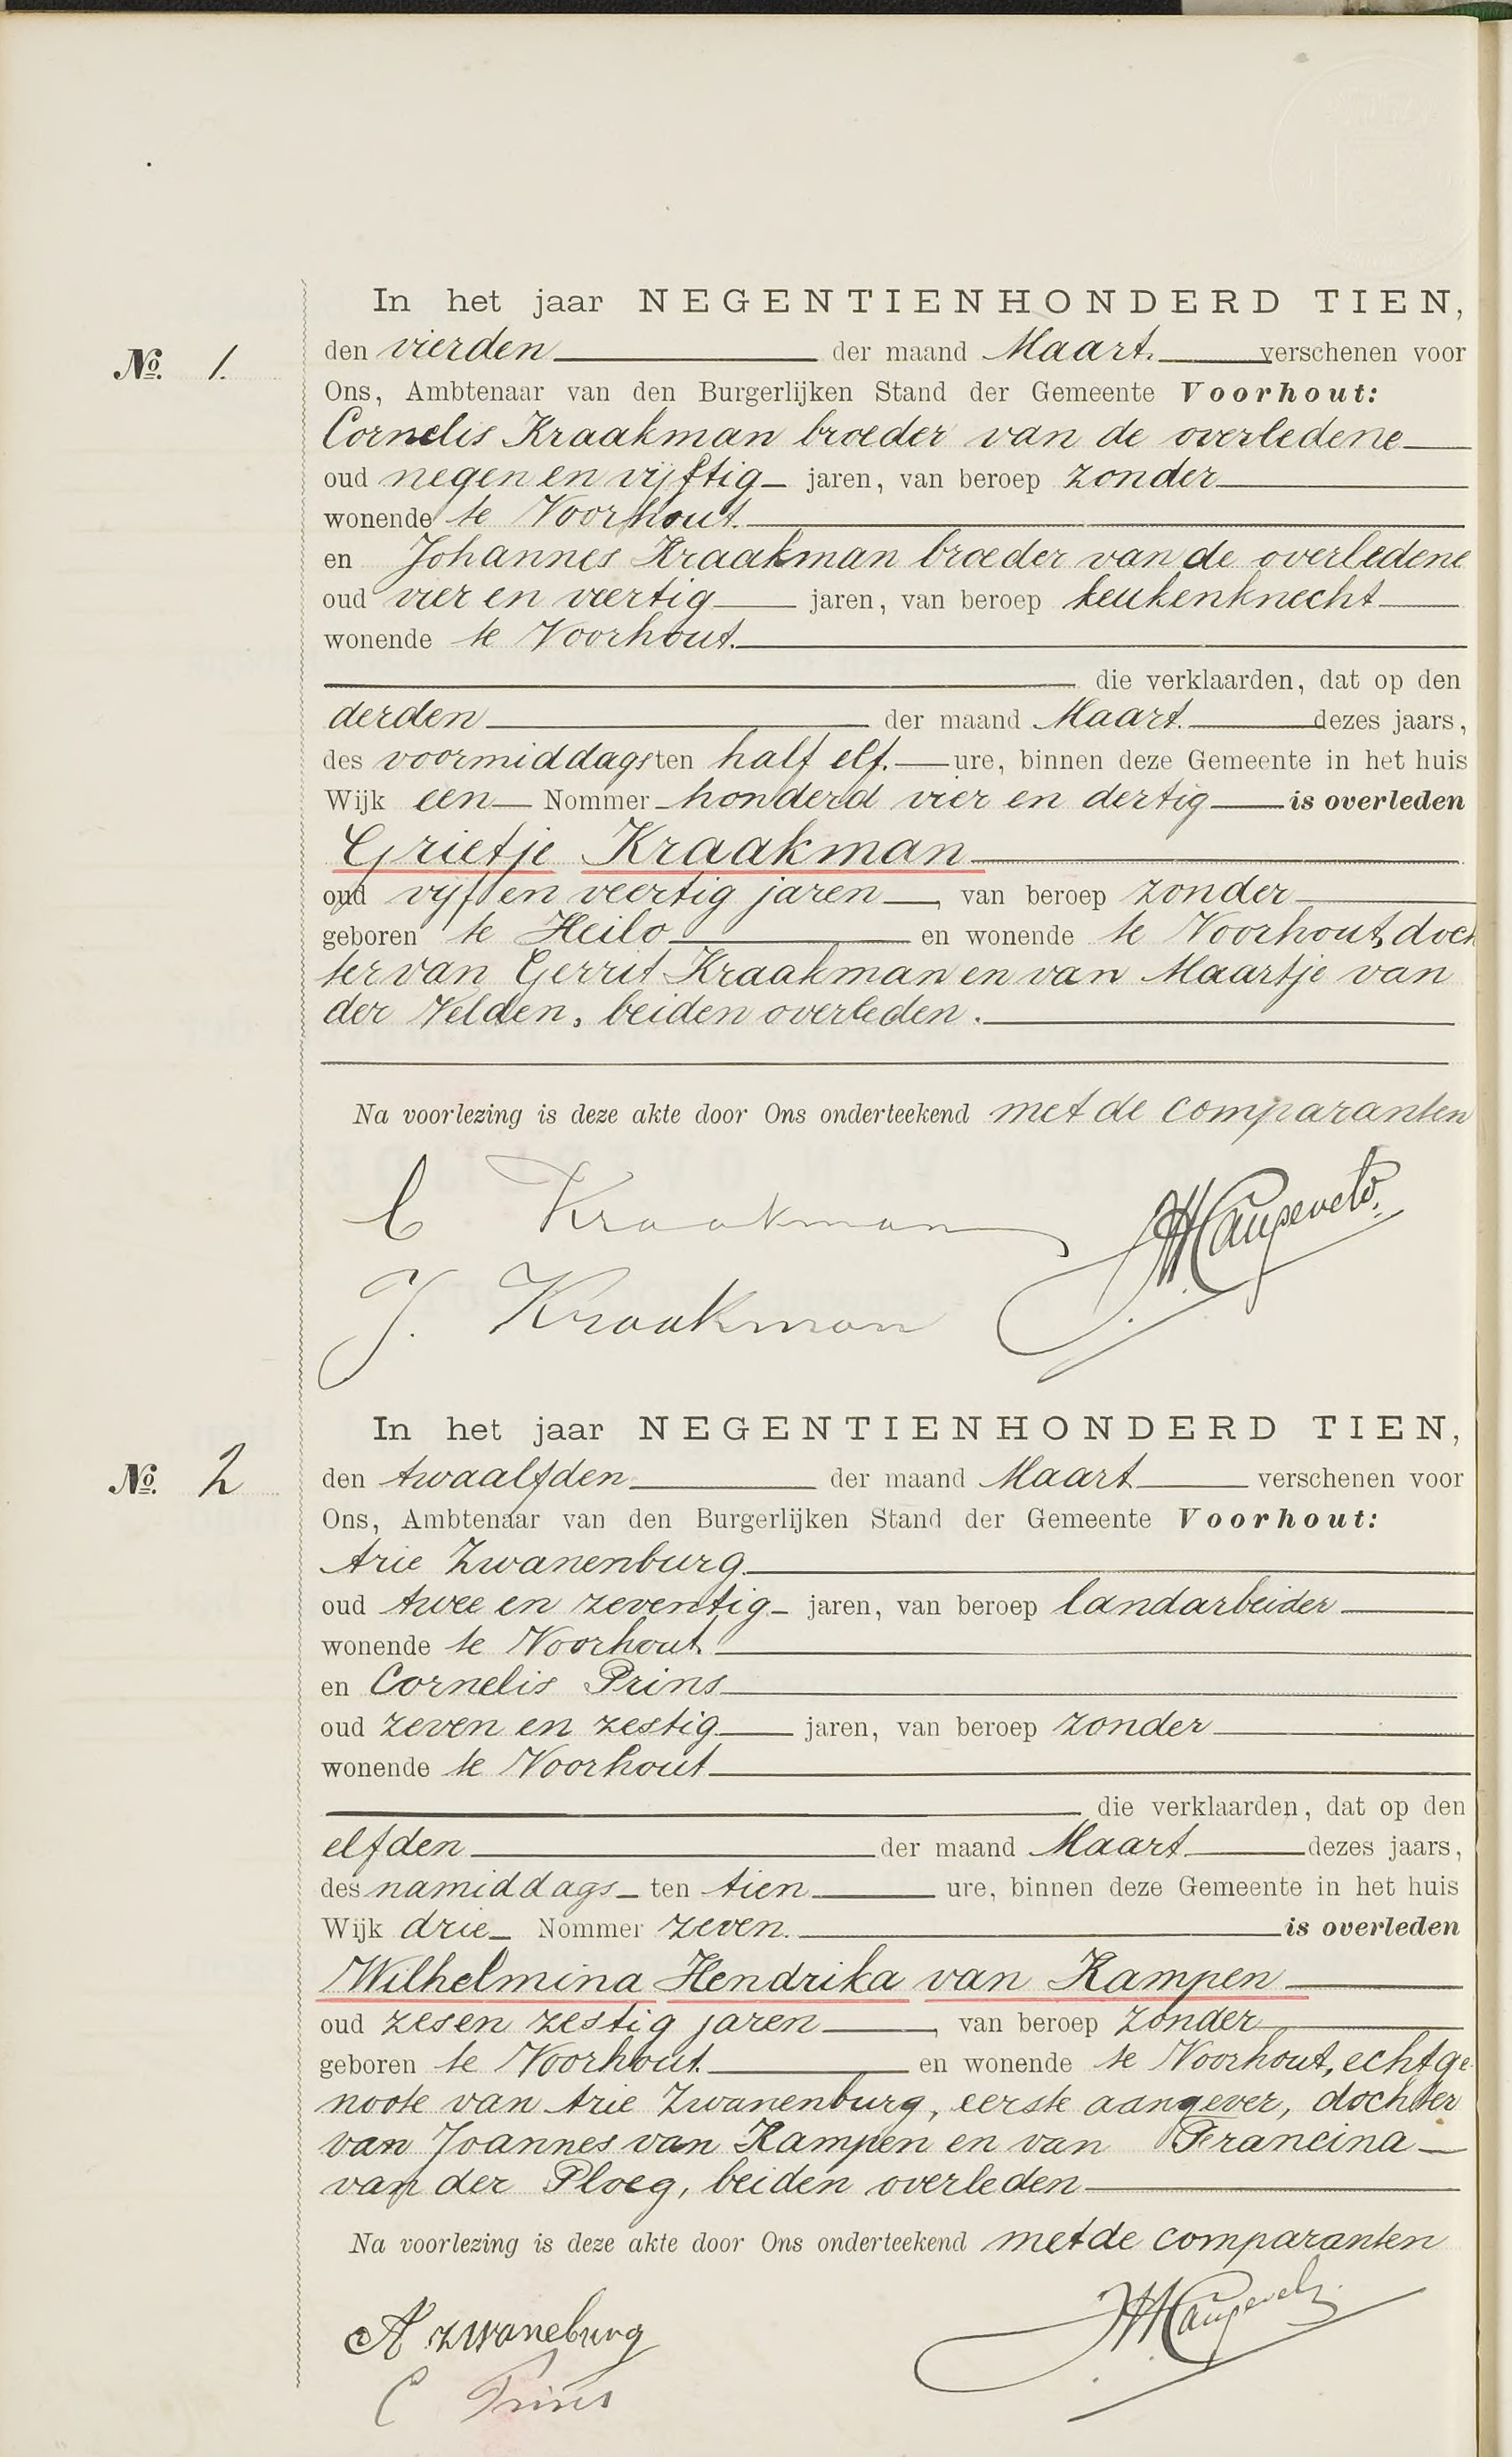 In het jaar NEGENTIENHONDERD TIEN,
No. 1. den vierden der maand Maart. verschenen voor
Ons, Ambtenaar van den Burgerlijken Stand der Gemeente Voorhout:
Cornelis Kraakman broeder van de overledene
oud negen en vijftig jaren, van beroep zonder
wonende te Voorhout.
en Johannes Kraakman broeder van de overledene
oud vier en veertig jaren, van beroep keukenknecht
wonende te Voorhout.
die verklaarden, dat op den
derden der maand Maart. dezes jaars,
des voormiddags ten half elf. ure, binnen deze Gemeente in het huis
Wijk een Nommer honderd vier en dertig is overleden
Grietje Kraakman
oud vijf en veertig jaren, van beroep zonder
geboren te Heilo en wonende te Voorhout, doch
ter van Gerrit Kraakman en van Maartje van
der Velden, beiden overleden.
Na voorlezing is deze akte door Ons onderteekend met de comparanten
C Kraakman
J. Kraakman
In het jaar NEGENTIENHONDERD TIEN,
No. 2 den twaalfden der maand Maart verschenen voor
Ons, Ambtenaar van den Burgerlijken Stand der Gemeente Voorhout:
Arie Zwanenburg.
oud twee en zeventig jaren, van beroep landarbeider
wonende te Voorhout.
en Cornelis Prins
oud zeven en zestig jaren, van beroep zonder
wonende te Voorhout
die verklaarden, dat op den
elfden der maand Maart dezes jaars,
des namiddags ten tien ure, binnen deze Gemeente in het huis
Wijk drie Nommer zeven. is overleden
Wilhelmina Hendrika van Kampen
oud zesen zestig jaren, van beroep zonder
geboren te Voorhout. en wonende te Voorhout, echtge
noote van Arie Zwanenburg, eerste aangever, dochter
van Joannes van Kampen en van Francina
van der Ploeg, beiden overleden
Na voorlezing is deze akte door Ons onderteekend met de comparanten
A zwaneburg
C Prins